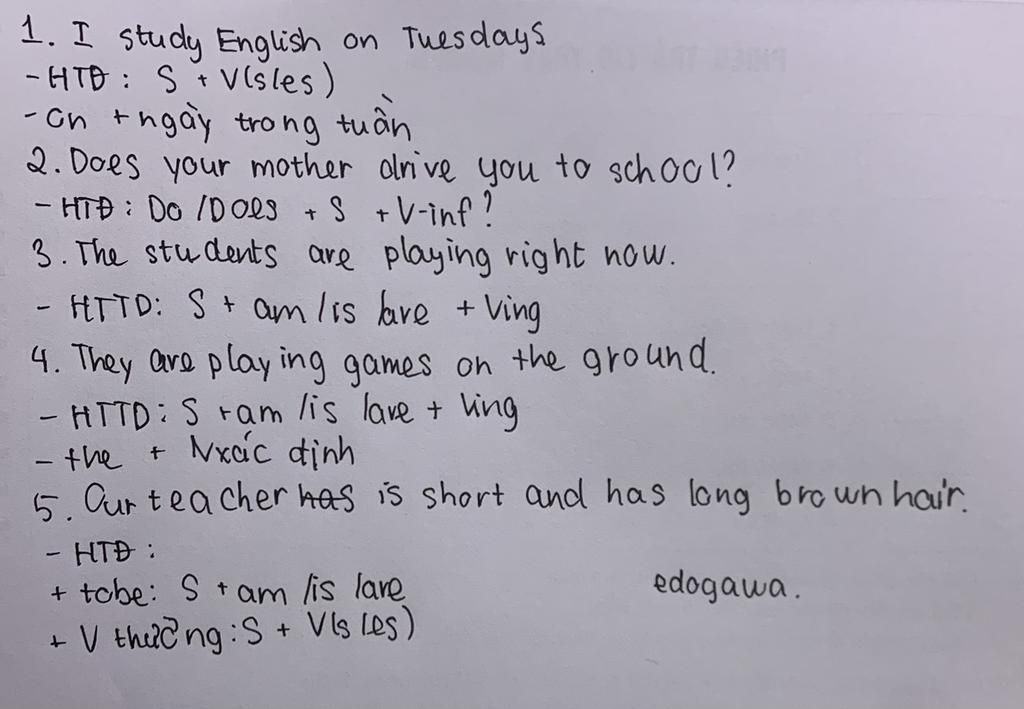 1. I study English on Tuesdays
- HTĐ: S + V(s/es)
- on + ngày trong tuần
2. Does your mother drive you to school?
- HTĐ: Do/Does + S + V-inf?
3. The students are playing right now.
- HTTD: S + am/is/are + Ving
4. They are playing games on the ground.
- HTTD: S + am/is/are + Ving
- the + N xác định
5. Our teacher has is short and has long brown hair.
- HTĐ:
+ tobe: S + am/is/are
edogawa.
+ V thường: S + V(s/es)